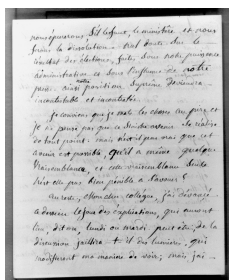 nous pouvons, s'il le faut, le ministère et nous
faire la dissolution. Nul doute sur le
résultat des élections, faites sous notre puissance
administrative et sous l'influence de notre
notre
ainsi position, Suprême deviendra
incontestable et incontestée.
Je conviens que je mets la chose au pire et
je ne pense pas que ce sinistre se réalise
de tout point. mais n'est-il pas vrai que cet
avenir est possible, qu'il a même quelque
vraisemblance, et cette vraisemblance seule
n'est-elle pas bien pénible à l'avance ?
Au reste, cher collègue, j'ai devancé
à dessein le jour des explications, qui auront
lieu, dit-on, lundi ou mardi. peut être, de la
discussion jaillira-t-il des lumières, qui
modifieront ma manière de voir; mais j'ai